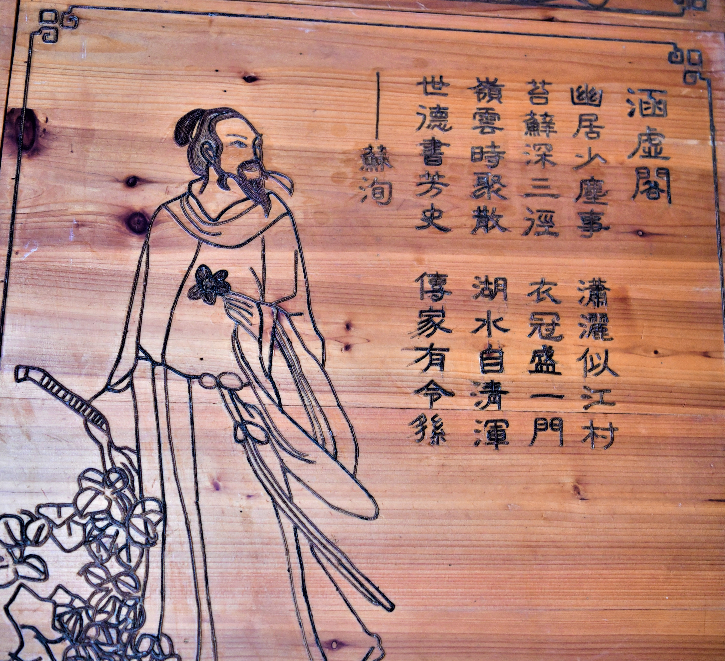 涵虚閣
幽居少塵事 瀟灑似江村
苔蘚深三徑 衣冠盛一門
嶺雲時聚散 湖水自清渾
世德書芳史 傳家有令孫
——蘇洵